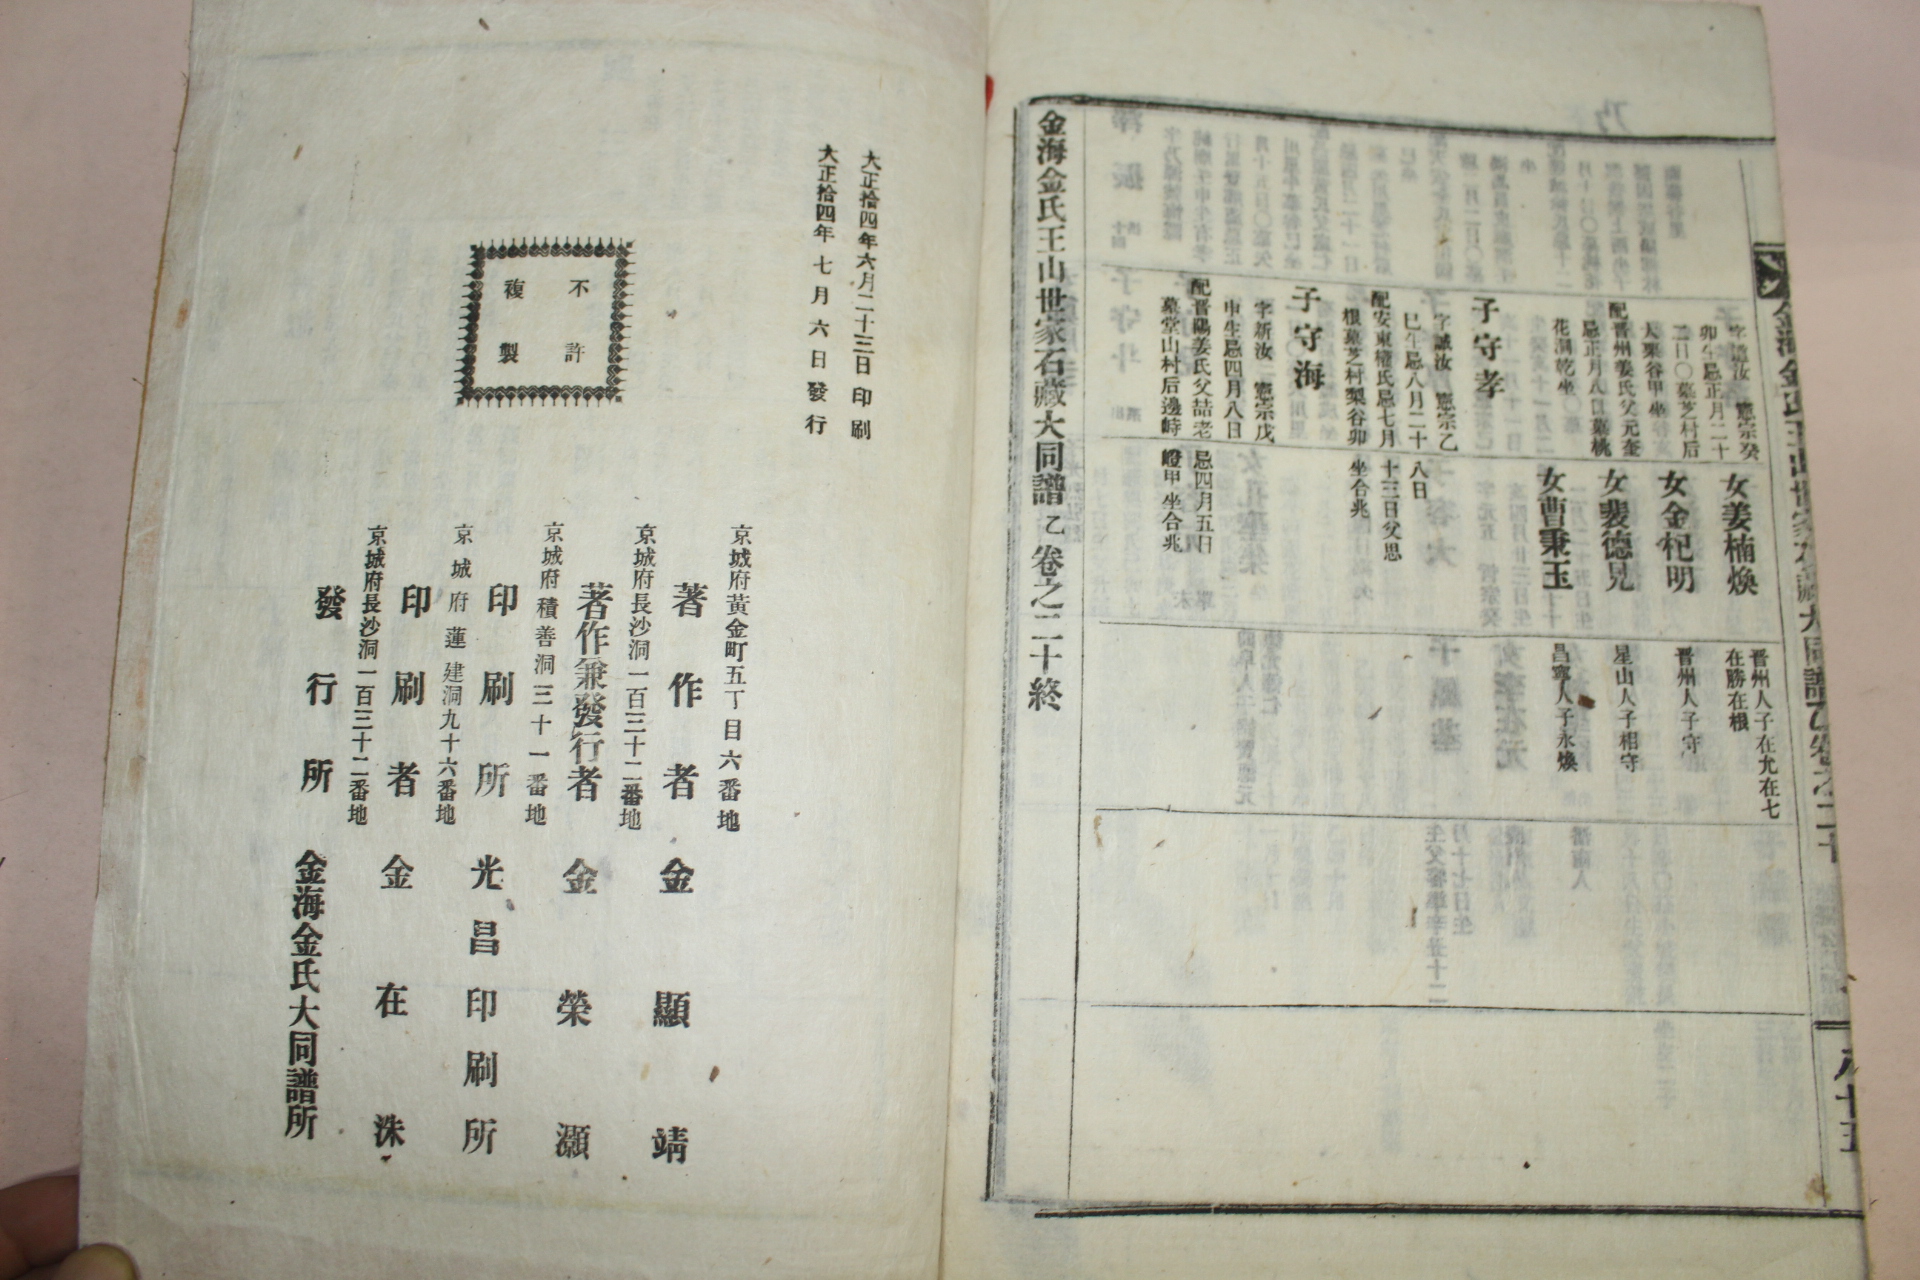 金海金氏王山世家石藏大同譜乙卷之二十
八十五
字德汝 憲宗癸
卯生忌正月二十
二日〇墓芝村后
大栗谷甲坐
配晋州姜氏父元奎
忌正月八日墓桃
花洞乾坐
子守孝
字誠汝 憲宗乙
巳生忌八月二十
八日
配安東權氏忌七月
十三日父思
根墓芝村梨谷卯
坐合兆
子守海
字新汝 憲宗戊
申生忌四月八日
配晋陽姜氏父喆老
忌四月五日
墓堂山村后邊峙
嶝甲坐合兆
女姜楠煥
晋州人子在允在七
在勝在根
女金杞明
晋州人子守
女裴德見
星山人子相守
女曹秉玉
昌寧人子永煥
金海金氏王山世家石藏大同譜 乙 卷之二十終
大正拾四年六月二十三日印刷
大正拾四年七月六日發行
不許
複製
京城府黃金町五丁目六番地
著作者 金顯靖
京城府長沙洞一百三十二番地
著作兼發行者 金榮灝
京城府積善洞三十一番地
印刷所 光昌印刷所
京城府蓮建洞九十六番地
印刷者 金在洙
京城府長沙洞一百三十二番地
發行所 金海金氏大同譜所